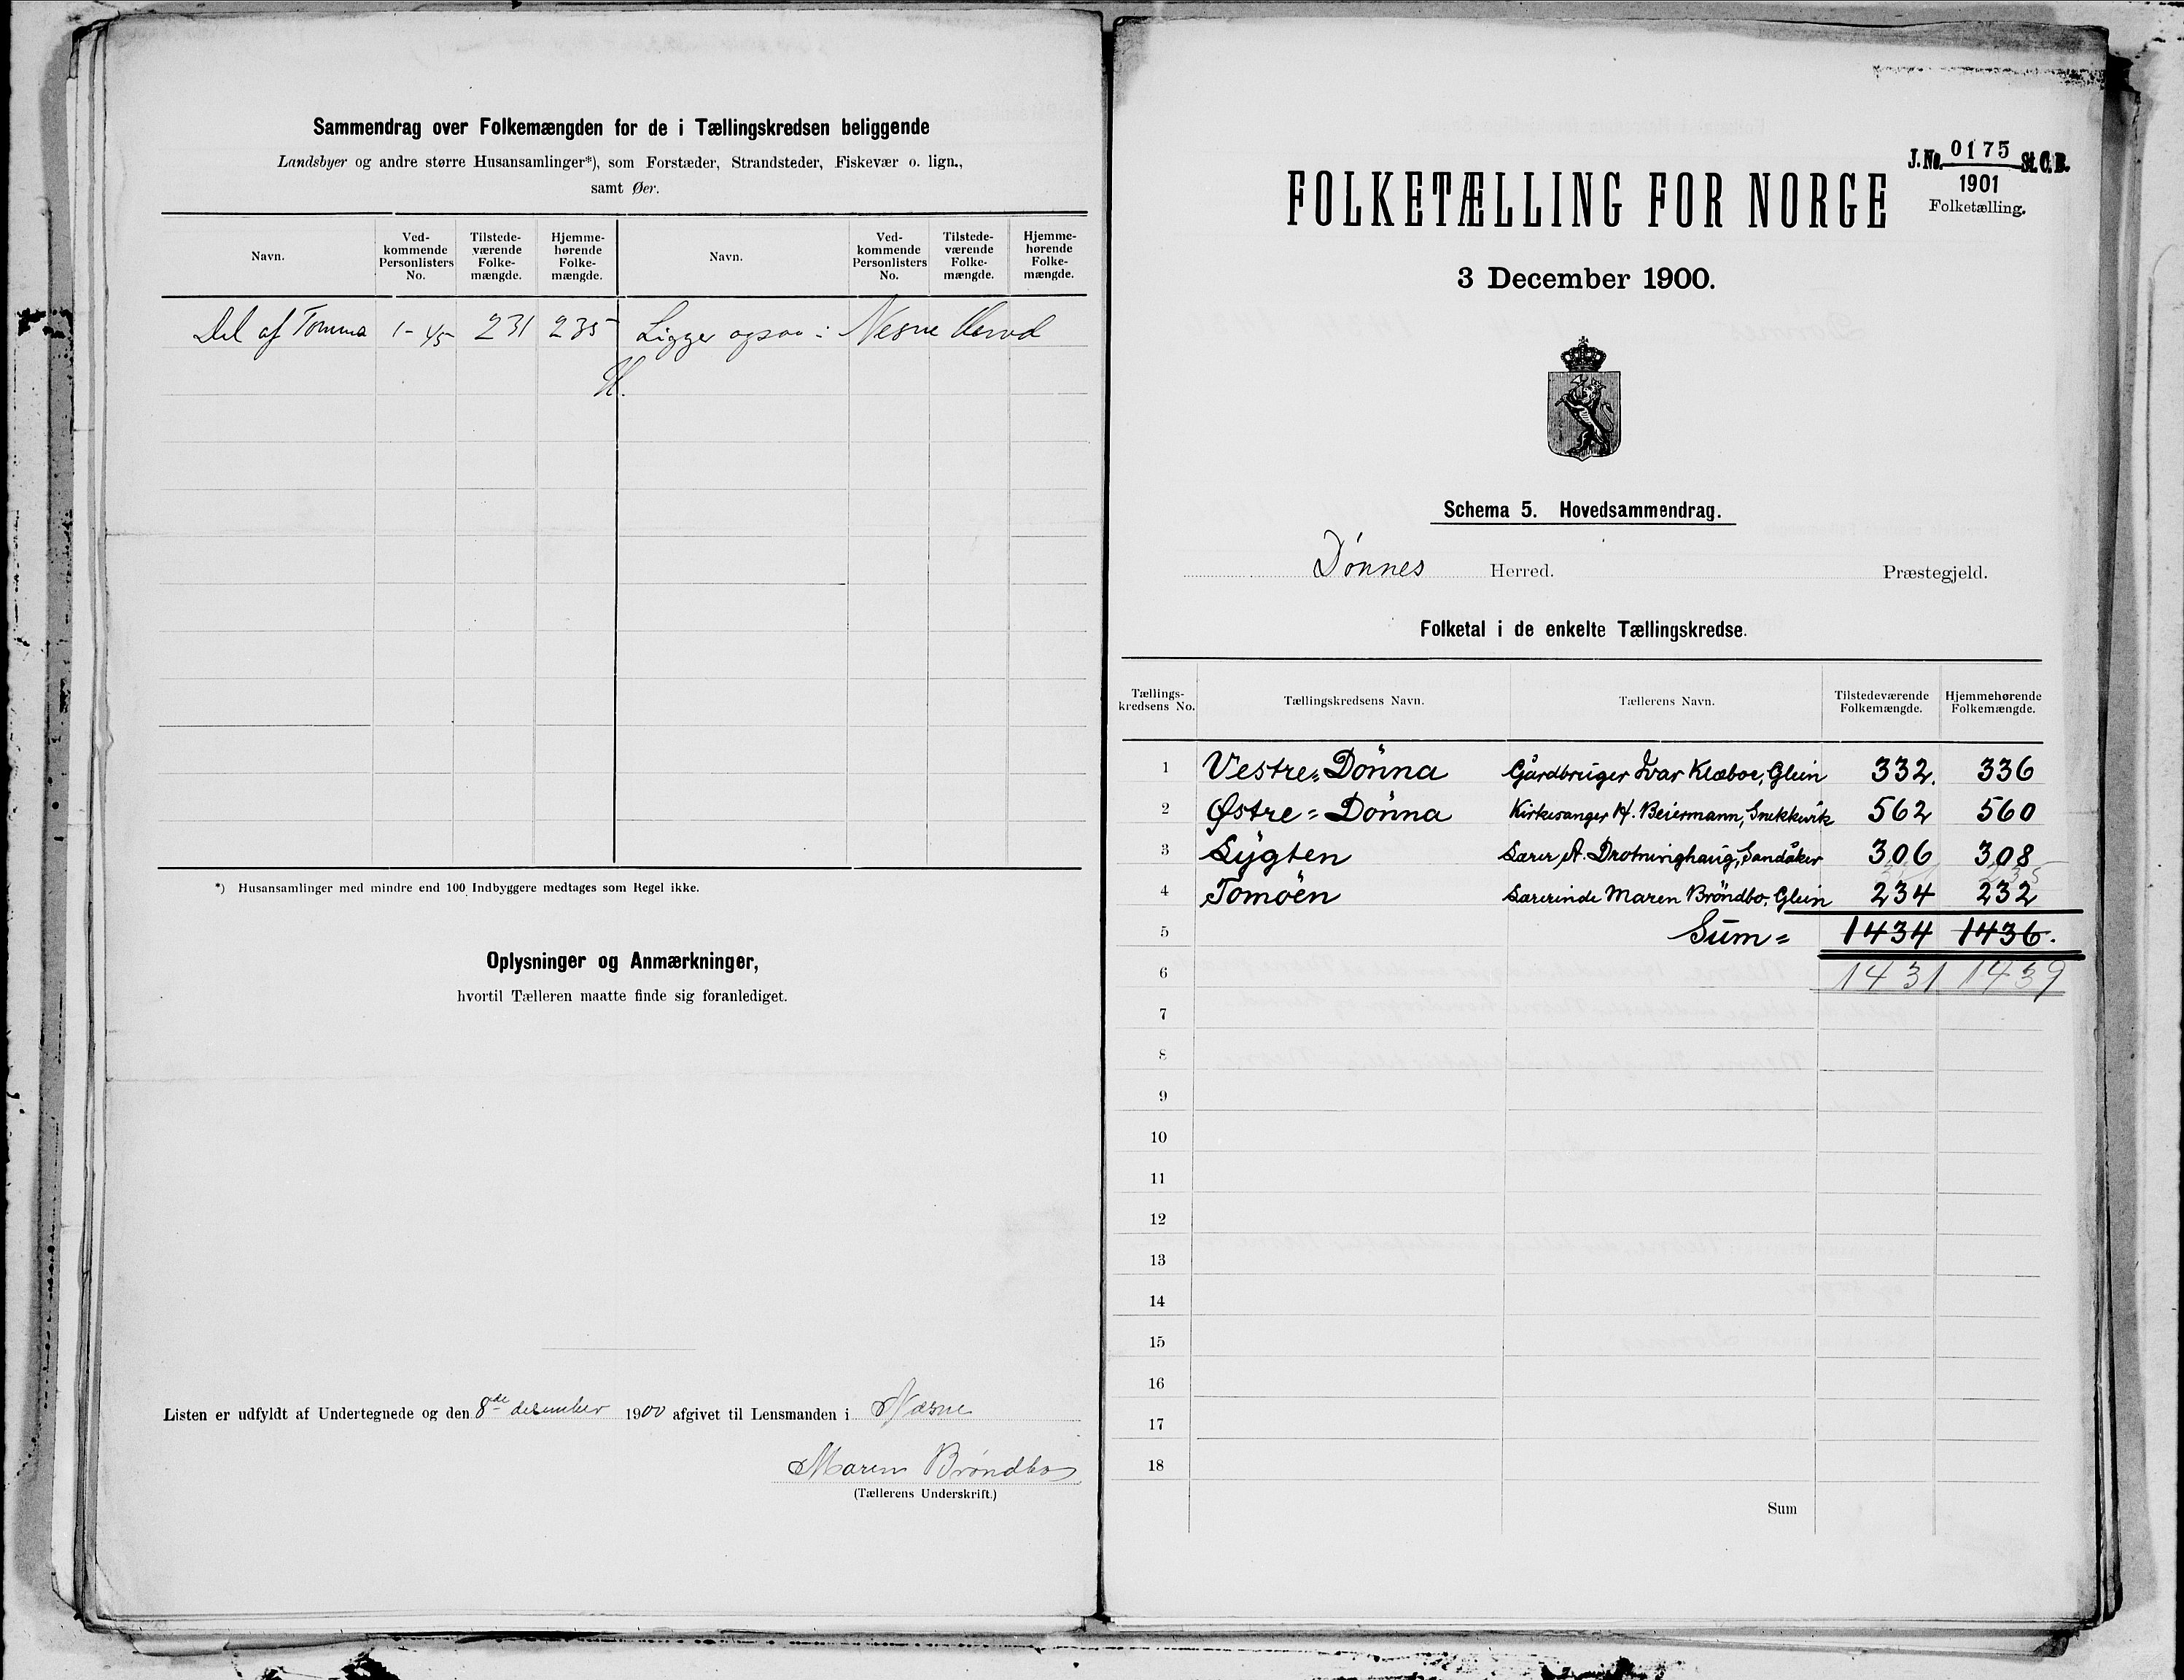 Sammendrag over Folkemængden for de i Tællingskredsen beliggende
Landsbyer og andre større Husansamlinger*), som Forstæder, Strandsteder, Fiskevær o. lign.,
samt Øer.
Navn. Ved-kommende Personlisters No. Tilstede-værende Folke-mængde. Hjemme-hørende Folke-mængde. Navn. Ved-kommende Personlisters No. Tilstede-værende Folke-mængde. Hjemme-hørende Folke-mængde.
Del af Tomma 1-45 231 235 Ligger ogsaa i Nesne Herred
H.
*) Husansamlinger med mindre end 100 Indbyggere medtages som Regel ikke.
Oplysninger og Anmærkninger,
hvortil Tælleren maatte finde sig foranlediget.
Listen er udfyldt af Undertegnede og den 8de desember 1900 afgivet til Lensmanden i Næsne
Maren Brøndbo
(Tællerens Underskrift.)
J. No. 0175 St. C. B.
1901
Folketælling.
FOLKETÆLLING FOR NORGE
3 December 1900.
Schema 5. Hovedsammendrag.
Dönnes Herred. Præstegjeld.
Folketal i de enkelte Tællingskredse.
Tællings-kredsens No. Tællingskredsens Navn. Tællerens Navn. Tilstedeværende Folkemængde. Hjemmehørende Folkemængde.
1 Vestre=Dönna Gårdbruger Ivar Klæboe, Glein 332. 336
2 Østre=Dönna Kirkesanger H. Beiermann, Snekkevik 562 560
3 Lygten Lærer A. Drotninghaug, Sandåker 306 308
4 Tomöen Lærerinde Maren Bröndbo, Glein 234 232
5 Sum= 1434 1436.
6 1431 1439
7
8
9
10
11
12
13
14
15
16
17
18
Sum